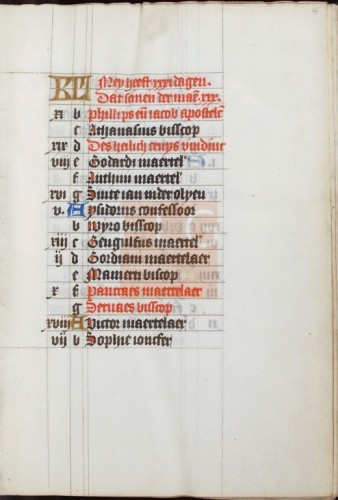 KL Mey heeft xxxi dagen.
Dat sonen der maen xxx.
xi b Phillips en iacob apostelen
c Athanasius bisscop
xix d Des heilich cruys vindinc
viii e Godardi maertel
f Anthim maertel
xvi g Sinte ian inder olyen
v. A Ysidorus confessoor
b Wyro bisscop
xiii c Gengulfus maertel
ii d Gordiani maertelaer
e Mamerti biscop
x f Pancraes maertelaer
g Servaes bisscop
xviii A Victor maertelaer
vii b Sophie ioncfer